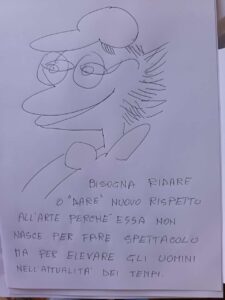 BISOGNA RIDARE
O "DARE" NUOVO RISPETTO
ALL'ARTE PERCHÉ ESSA NON
NASCE PER FARE SPETTACOLO
MA PER ELEVARE GLI UOMINI
NELL'ATTUALITÀ DEI TEMPI.